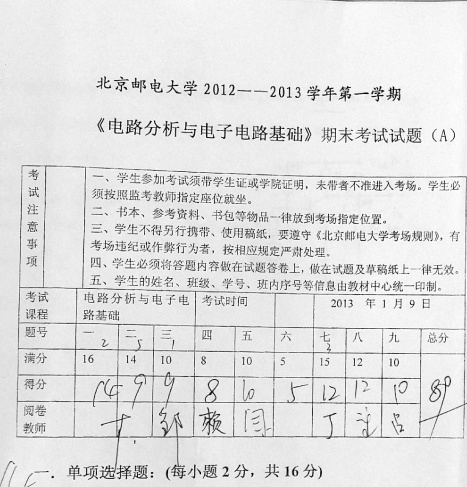 北京邮电大学 2012——2013 学年第一学期
《电路分析与电子电路基础》期末考试试题（A）
考试注意事项
一、学生参加考试须带学生证或学院证明，未带者不准进入考场。学生必
须按照监考教师指定座位就坐。
二、书本、参考资料、书包等物品一律放到考场指定位置。
三、学生不得另行携带、使用稿纸，要遵守《北京邮电大学考场规则》，有
考场违纪或作弊行为者，按相应规定严肃处理。
四、学生必须将答题内容做在试题答卷上，做在试题及草稿纸上一律无效。
五、学生的姓名、班级、学号、班内序号等信息由教材中心统一印制。
考试 电路分析与电子电 考试时间 2013 年 1 月 9 日
课程 路基础
题号 一 二 三 四 五 六 七 八 九 总分
2 5 1 3
满分 16 14 10 8 10 5 15 12 10
得分 14 9 9 8 10 5 12 12 10 89
阅卷 邹 赖 闫 丁
教师
一．单项选择题：(每小题 2 分，共 16 分)